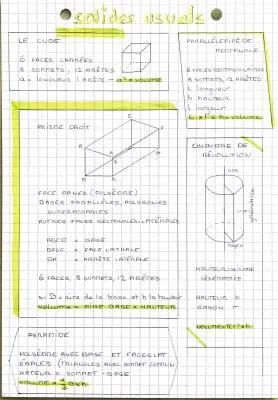 solides usuels
LE CUBE
6 FACES CARRÉES
8 SOMMETS, 12 ARÊTES
a = LONGUEUR 1 ARÊTE → a³ = VOLUME
PARALLÉLÉPIPÈDE
RECTANGLE
6 FACES RECTANGULAIRES
8 SOMMETS, 12 ARÊTES
L longueur
h hauteur
l largeur
L x l x h = volume
PRISME DROIT
FACE PLANES (POLYÈDRE)
BASES PARALLÈLES, POLYGONES
SUPERPOSABLES
AUTRES FACES RECTANGLES LATÉRALES
= BASE
= FACE LATÉRALE
= ARRÊTE LATÉRALE
6 FACES, 8 SOMMETS, 12 ARÊTES
si B = aire de la base et h la hauteur
VOLUME = AIRE BASE x HAUTEUR
CYLINDRE DE
RÉVOLUTION
axe
génératrice
rayon
HAUTEUR
GÉNÉRATRICE
HAUTEUR h
RAYON r
PYRAMIDE
POLYÈDRE AVEC BASE ET FACES LAT
ÉRALES (TRIANGLES AVEC SOMMET COMMUN
HAUTEUR = SOMMET - BASE
VOLUME = 1/3 B x h